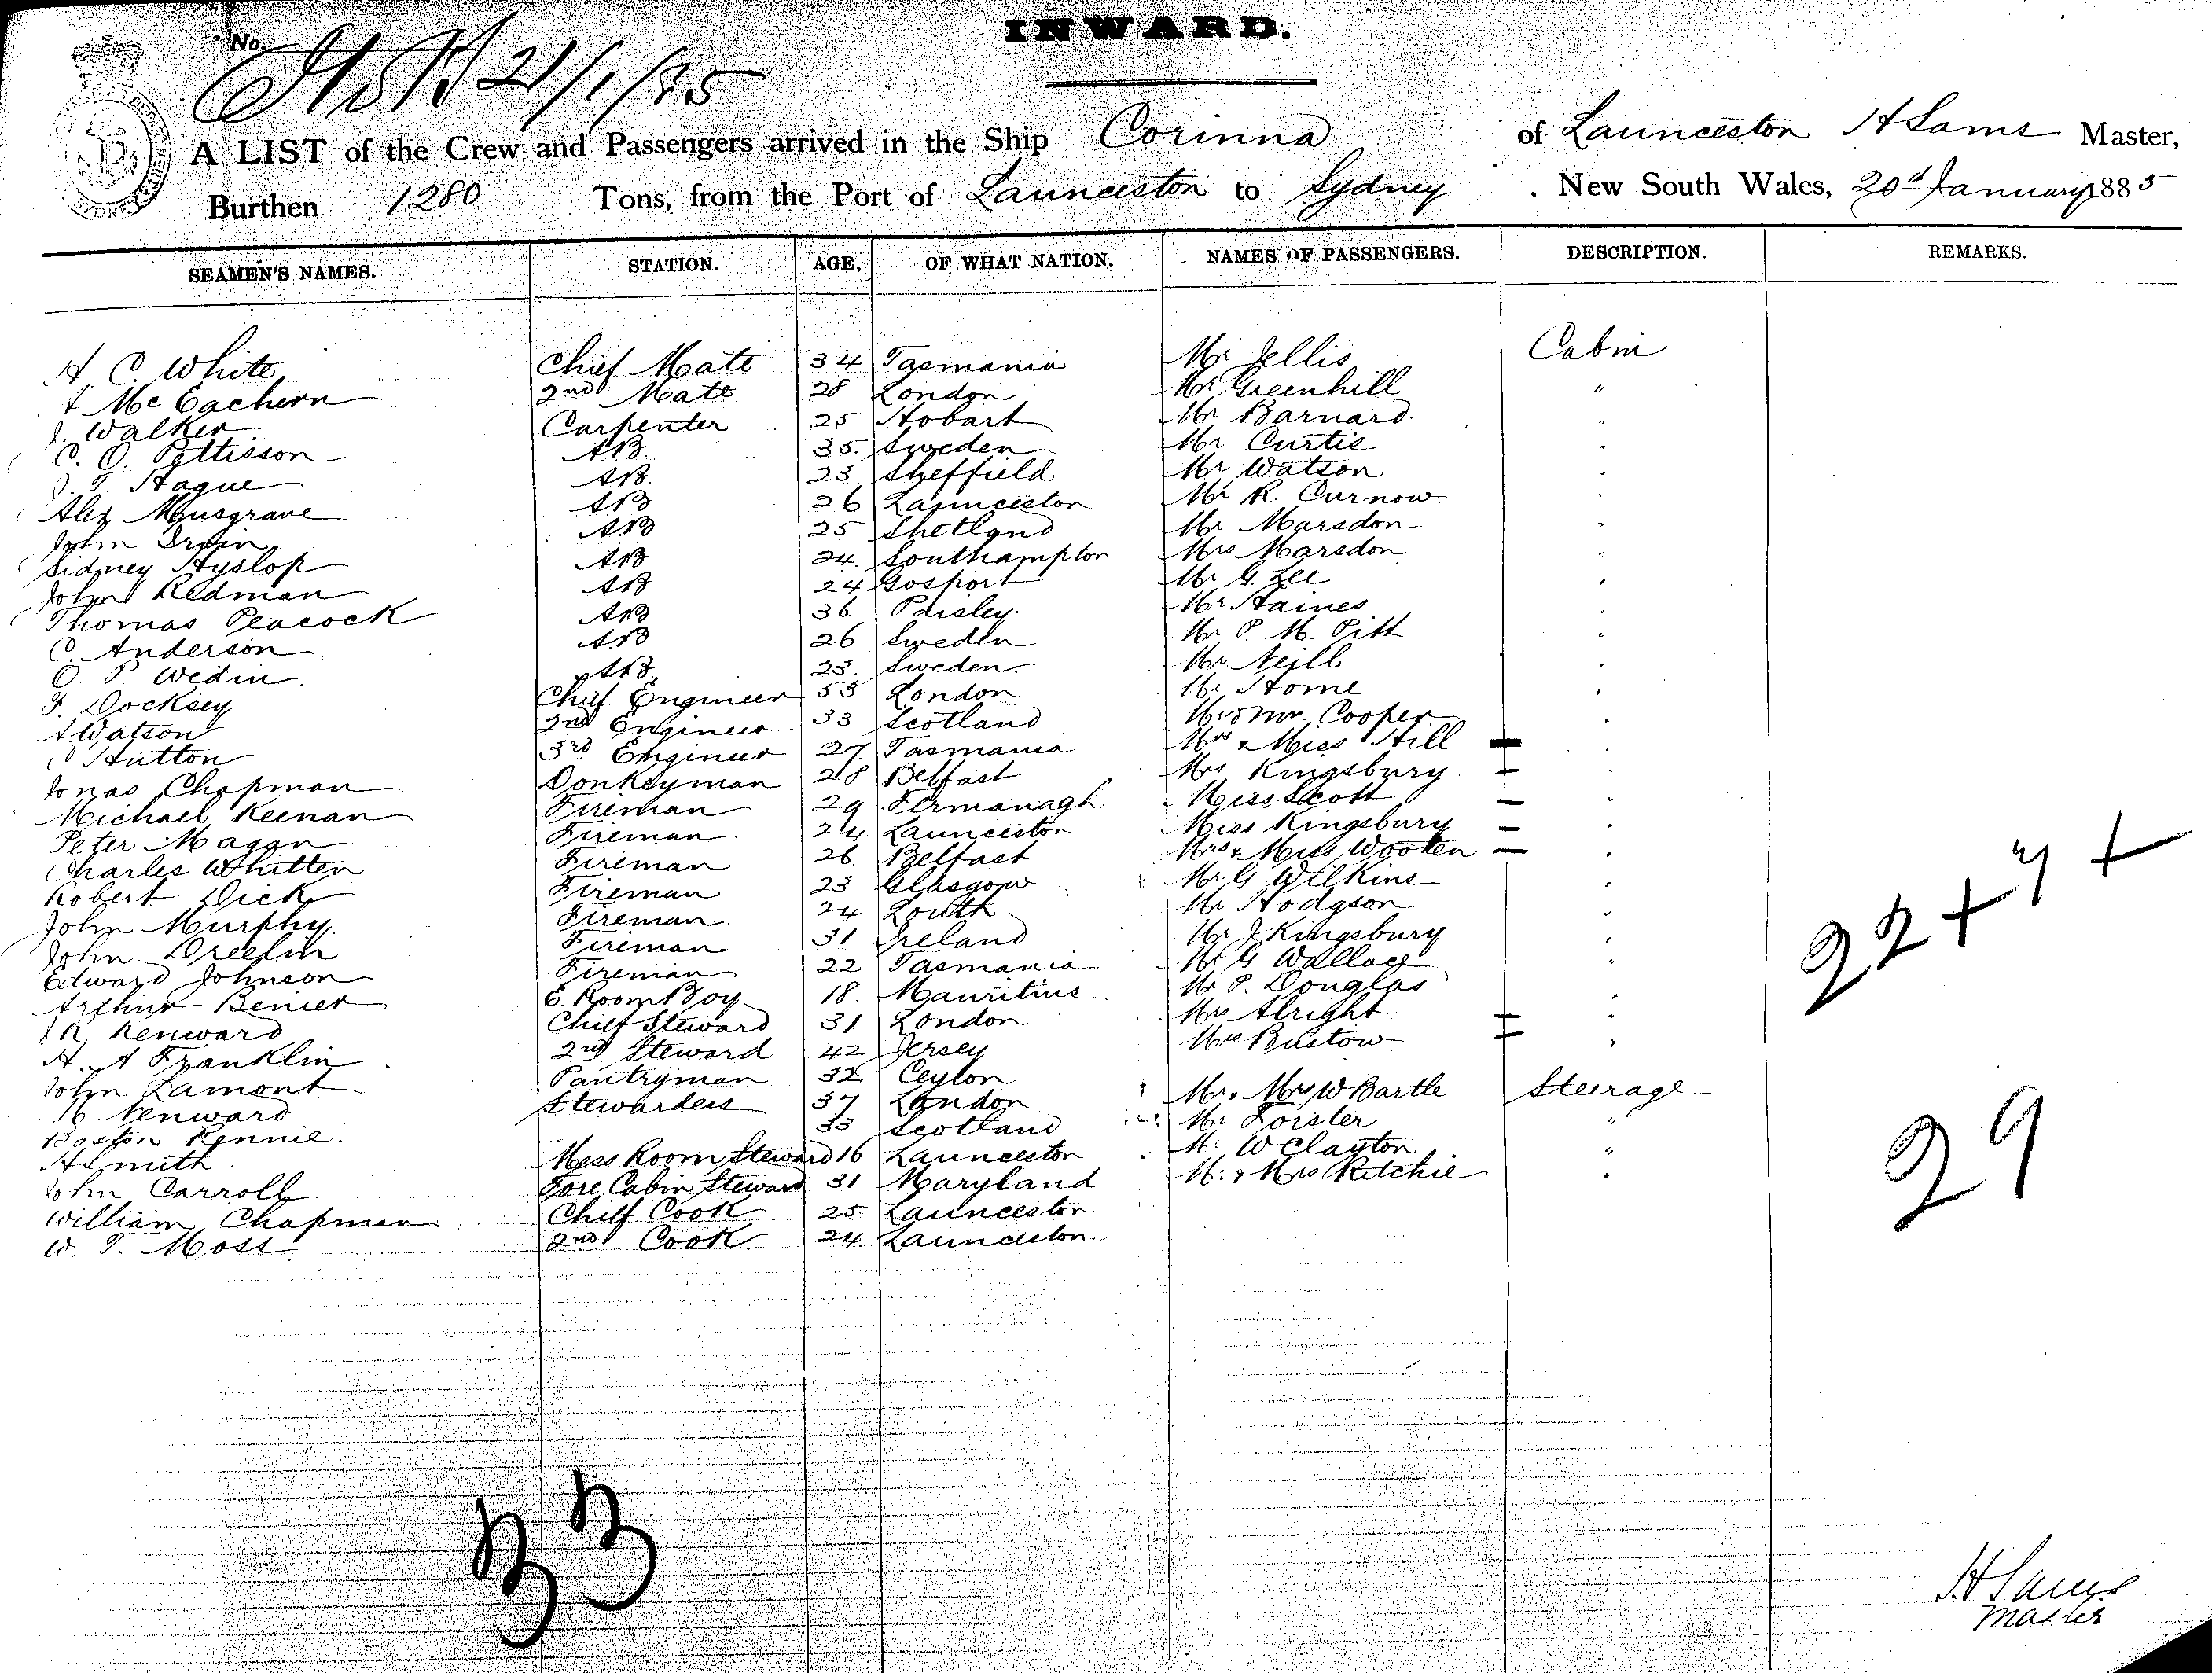 INWARD.
No. 21/1/85
A LIST of the Crew and Passengers arrived in the Ship Corinna of Launceston H Sams Master,
Burthen 1280 Tons, from the Port of Launceston to Sydney . New South Wales, 20d January 1885
SEAMEN'S NAMES. STATION. AGE. OF WHAT NATION. NAMES OF PASSENGERS. DESCRIPTION. REMARKS.
A. C. White Chief Mate 34 Tasmania Mr Jellis Cabin
McEachern 2nd Mate 28 London Mr Greenhill "
J. Walker Carpenter 25 Hobart Mr Barnard "
C. O. Pettisson AB. 35. Sweden Mr Curtis "
J. T. Hague AB. 23 Sheffield Mr Watson "
Alex Musgrave AB 26 Launceston Mr R. Curnow "
John Irvin AB 25 Shetland Mr Marsdon "
Sidney Hyslop AB 24. Southampton Mrs Marsdon "
John Redman AB 24 Gosport Mr G. Lee "
Thomas Peacock AB 36. Paisley. Mr Haines "
C. Anderson AB 26 Sweden Mr P. M. Pitt "
O. P. Wedin. AB. 23. Sweden Mr Neill "
F. Docksey Chief Engineer 53 London Mr Home "
A Watson 2nd Engineer 33 Scotland Cooper "
C Hutton 3rd Engineer 27. Tasmania Mrs & Miss Hill "
Jonas Chapman Donkeyman 28 Belfast Mrs Kingsbury "
Michael Keenan Fireman 29 Fermanagh Miss Scott "
Peter Magan Fireman 24 Launceston Miss Kingsbury "
Charles Whitten Fireman 26. Belfast Mrs & Miss Wooten "
Robert Dick Fireman 23 Glasgow Mr G Wilkins "
John Murphy. Fireman 24 Louth Mr Hodgson "
John Dreelin Fireman 31 Ireland Mr J. Kingsbury "
Edward Johnson Fireman 22 Tasmania Mr G Wallace "
Arthur Benier E. Room Boy 18. Mauritius Mr P. Douglas "
Kenward Chief Steward 31 London Mrs Alright "
H. A Franklin 2nd Steward 42 Jersey Mrs Bustow "
John Lamont Pantryman 32 Ceylon Mr. Mrs W Bartle Steerage
Kenward Stewardess 37 London Mr Forster "
Rennie. 33 Scotland Mr W Clayton "
H Smith Mess Room Steward 16 Launceston Mr & Mrs Ritchie "
John Carroll Fore Cabin Steward 31 Maryland
William Chapman Chief Cook 25 Launceston
W. T. Moss 2nd Cook 24 Launceston
22+7+
29
33
H Sams
Master